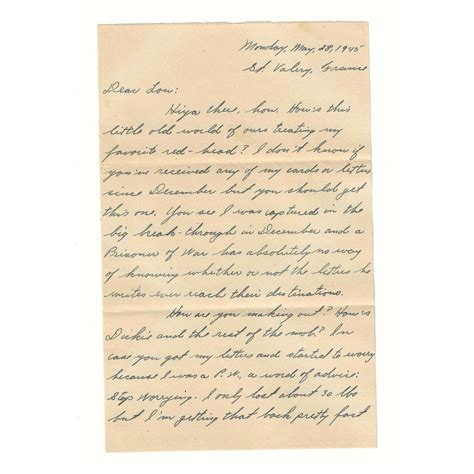 Monday, May, 28, 1945
St. Valery, France
Dear Lou:
Hiya there, hon. How's this
little old world of ours treating my
favorite red-head? I don't know if
you've received any of my cards or letters
since December but you should get
this one. You se I was captured in the
big break-through in December and a
Prisoner of War has absolutely no way
of knowing whether or not the letters he
writes ever reach their destinations.
How are you making out? How is
Dickie and the rest of the mob? In
case you got my letters and started to worry
because I was a P.W. a word of advice:
Stop Worrying. I only lost about 30 lbs
but I'm getting that back pretty fast